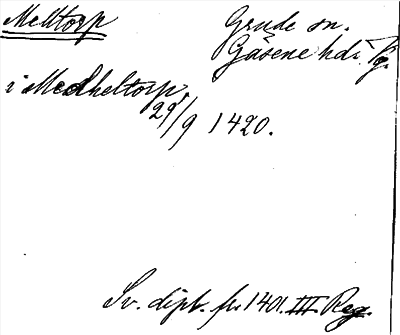 Melltorp
Grude sn.
Gäsene hd.
i Medheltorp,
29/9 1420.
Sv. dipl. fr. 1401. III Reg.